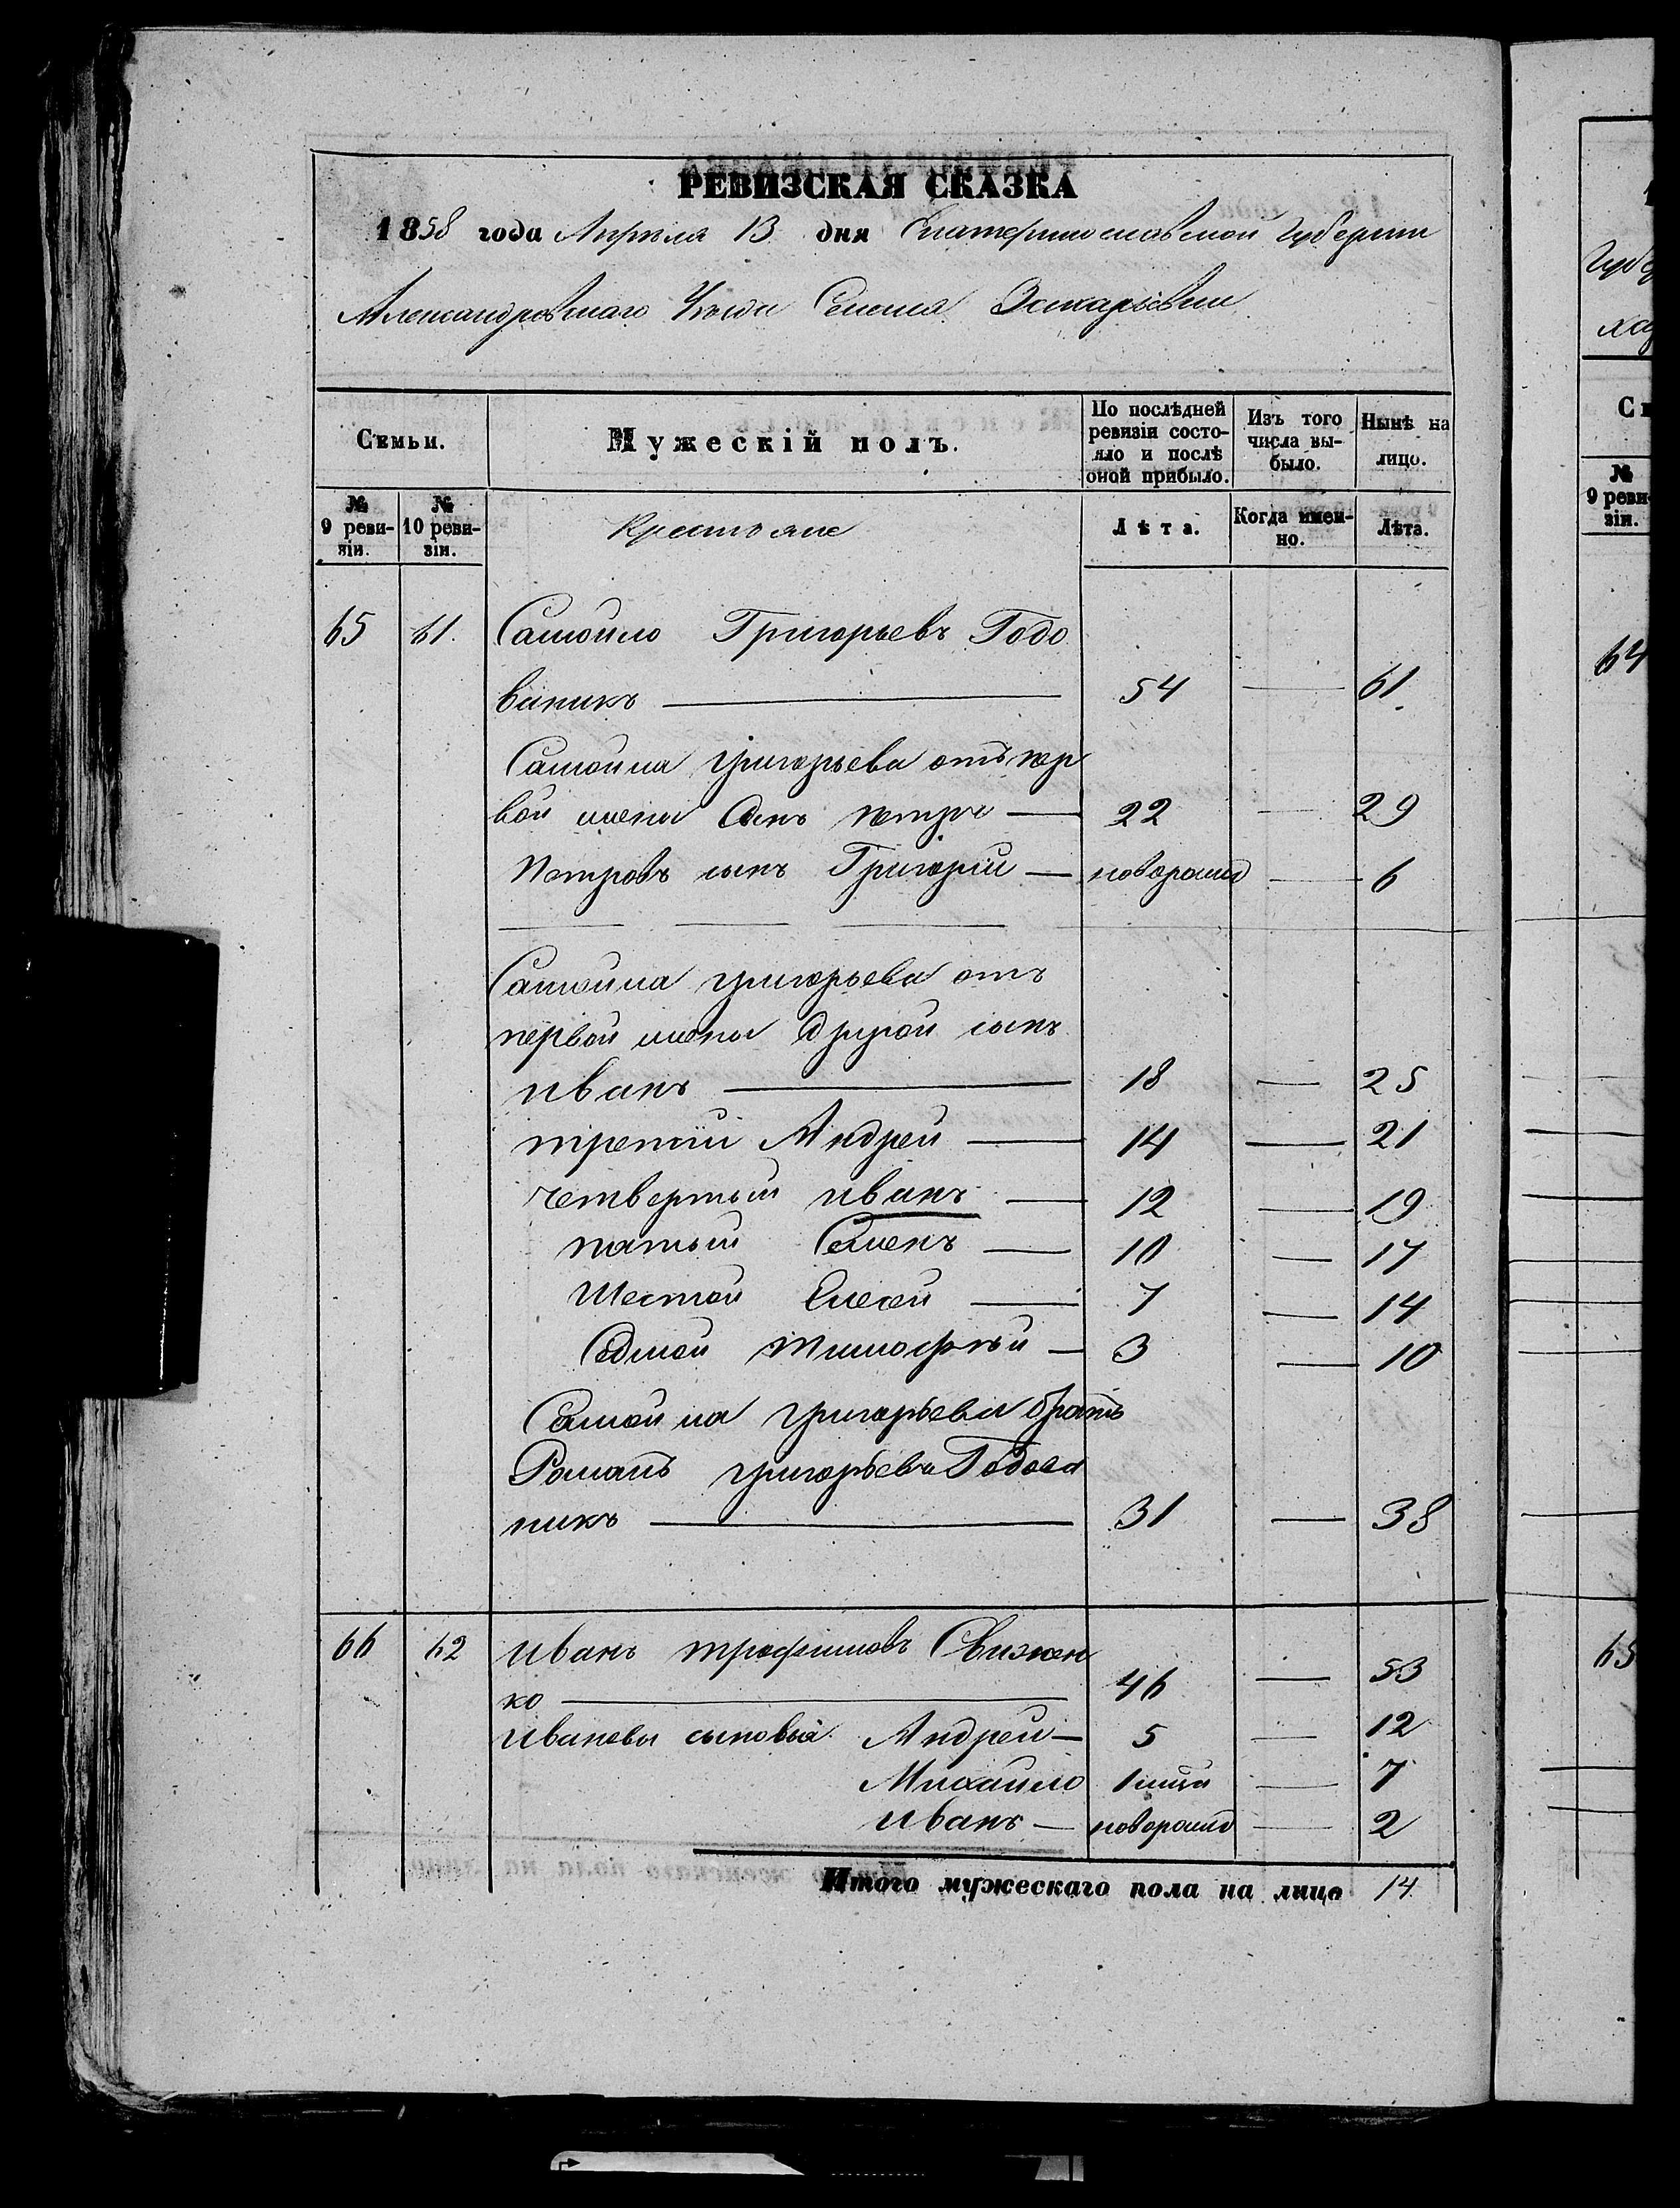 РЕВИЗСКАЯ СКАЗКА
1858 года Апреля 13 дня Екатеринославской Губернии
Александровскаго Уезда Селенiя
Семьи. Мужескій полъ. По послѣдней ревизіи состояло и послѣ оной прибыло. Изъ того числа выбыло. Нынѣ на лицо.
№ 9 ревизіи. № 10 ревизіи. Крестьяне Лѣта. Когда именно. Лѣта.
65 61. Самойло Григорьевъ Годо
ваникъ — 54 — 61.
Самойла григорьева отъ пер
вой жены Сынъ петръ — 22 — 29
Петровъ сынъ Григорiй — новорожд — 6
Самойла григорьева отъ
первой жены другой сынъ
иванъ — 18 — 25
третiй Андрей — 14 — 21
четвертый иванъ — 12 — 19
пятый Семенъ — 10 — 17
Шестой Елесей — 7 — 14
Седмой тимофѣй — 3 — 10
Самойла григорьева братъ
Романъ григорьевъ Годова
никъ — 31 — 38
66 62 иванъ трофимовъ Свижен
ко — 46 — 53
ивановы сыновья Андрей — 5 — 12
Михайло 1 — 7
иванъ — новорожд — 2
Итого мужескаго пола на лицо 14
Губе
ха
Се
№
9 реви
зіи.
64
65